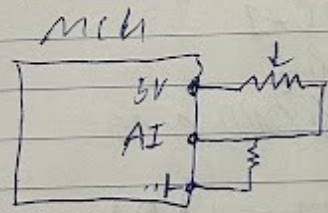 MCU
5V
AI